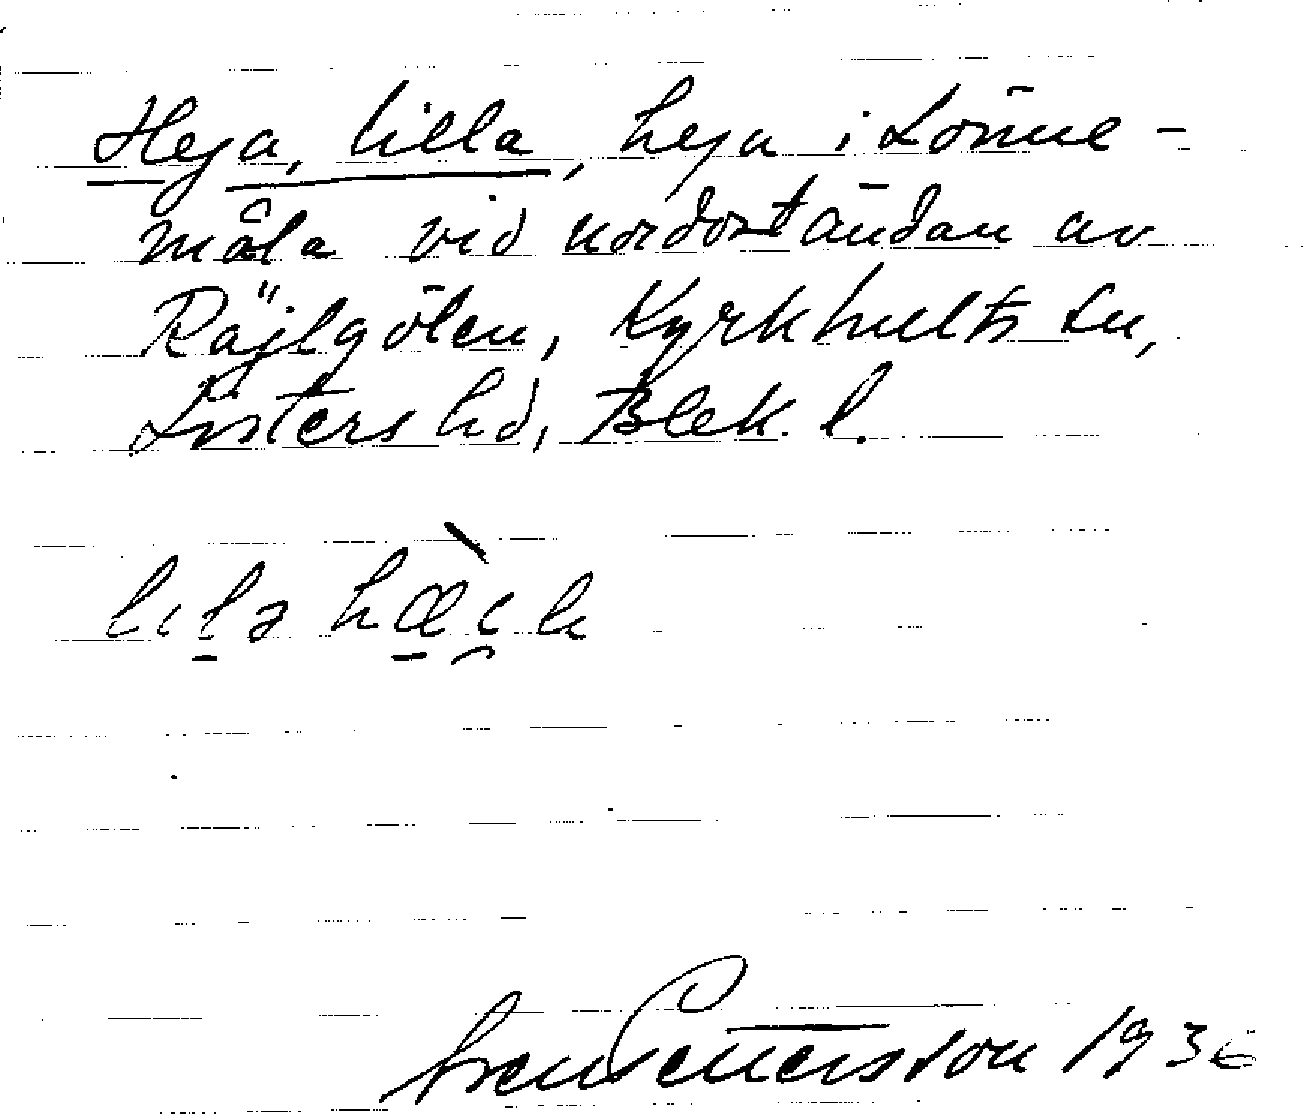 Heja, lilla, heja i Lönne-
måla vid nordoständan av
Räjlgölen, Kyrkhults sn,
Listers hd, Blek. l.
lila hæia
Sven Pettersson 1936